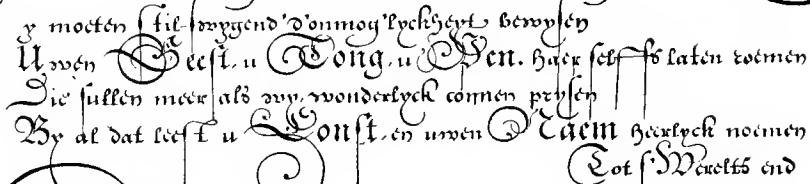 y moeten stil-swygend' d'onmog'lyckheyt bewysen
Uwen Geest, u Tong, u Pen. haer selffs laten roemen
Die sullen meer als wy, wonderlyck connen prysen
By al dat leest u Const, en uwen Naem heerlyck noemen
Tot s'Werelts end